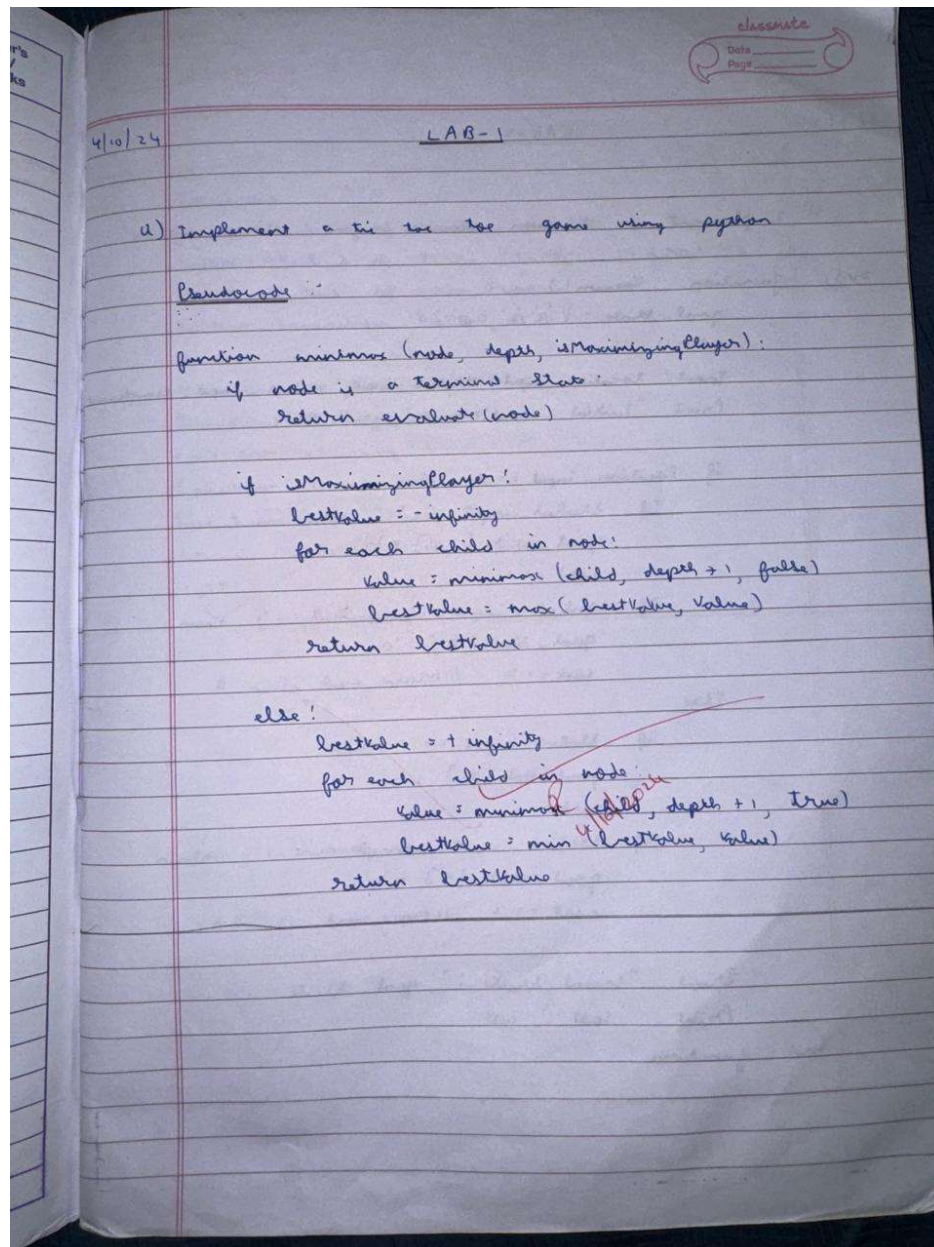 r's
y
ks
classmate
Date
Page
4/10/24
LAB-1
a) Implement a tic tac toe game using python
Pseudocode :-
function minimax (node, depth, isMaximizingPlayer):
if node is a terminal state:
return evaluate (node)
if isMaximizingPlayer:
bestValue = - infinity
for each child in node:
value = minimax (child, depth + 1, false)
bestValue = max( bestValue, value)
return bestValue
else:
bestValue = + infinity
for each child in node:
value = minimax (child, depth + 1, true)
bestValue = min (bestValue, value)
4/10/2024
return bestValue